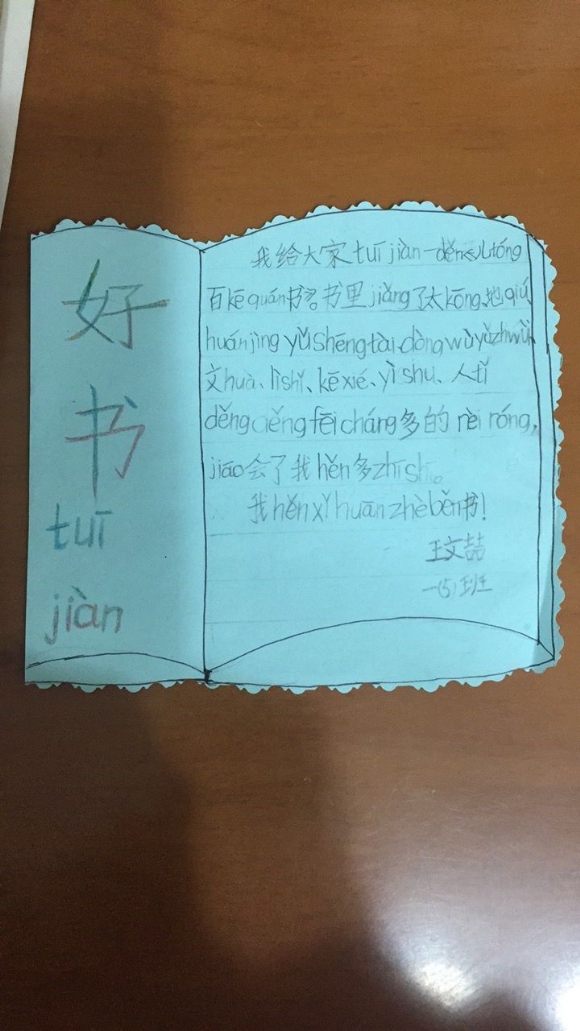 好
书
tuī
jiàn
我给大家tuī jiàn一 儿tóng
百kē quán书。书里jiǎng了太kōng、地qiú
huánjìng yǔ shēngtài、dòngwùyǔzhwù、
文huà、lìshǐ、kēxié、yìshu、人tǐ
děng děng fēi cháng多的 nèi róng,
jiāo会了我hěn多zhīshi。
我hěn xǐ huān zhè běn书!
王文喆
一(5)班